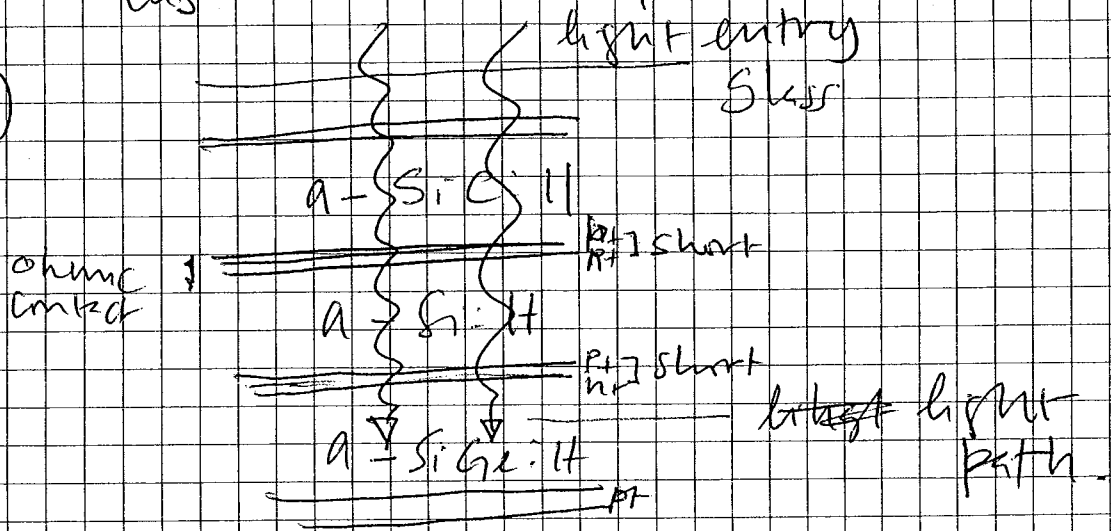 light entry
Glass
a - SiC: H
] short
ohmic
contact
a - Si: H
p+
n+ ] short
light
path.
a - SiGe: H
p+